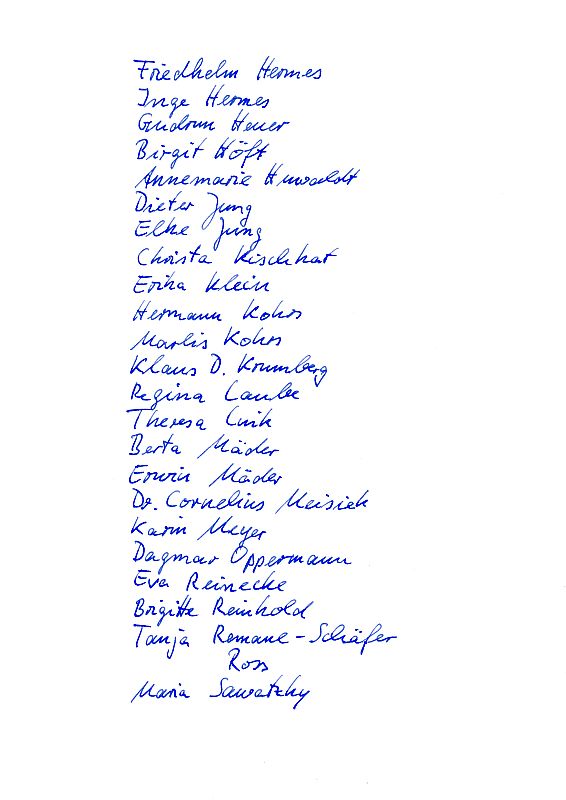 Friedhelm Hermes
Inge Hermes
Gudrun Heuer
Birgit Höft
Annemarie Huwaldt
Dieter Jung
Elke Jung
Christa Kischkat
Erika Klein
Hermann Kohrs
Marlis Kohrs
Klaus D. Krumberg
Regina Laube
Theresa Link
Berta Mäder
Erwin Mäder
Dr. Cornelius Meisiek
Karin Meyer
Dagmar Oppermann
Eva Reinecke
Brigitte Reinhold
Tanja Remane-Schäfer
Ross
Maria Sawatzky